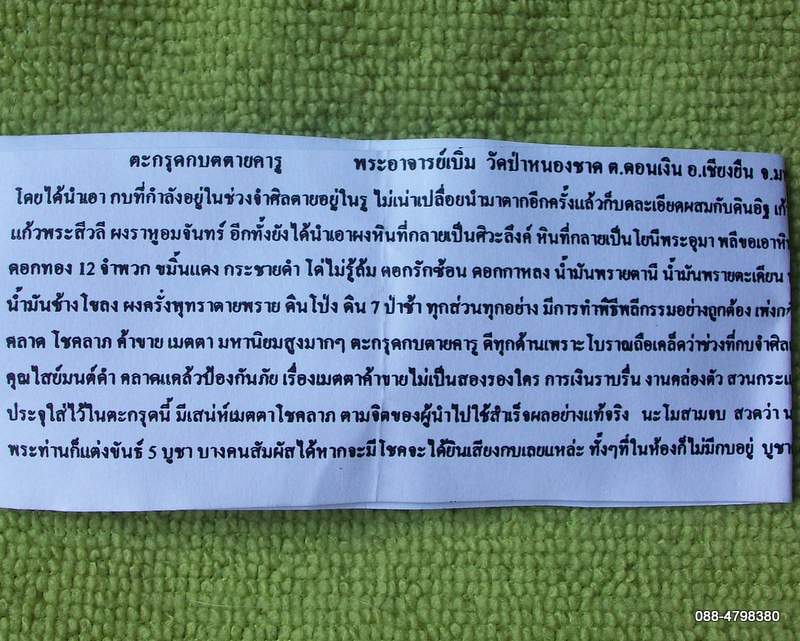 ตะกรุดกบตตายคารู พระอาจารย์เบิ่ม วัดป่าหนองชาด ต.ดอนเงิน อ.เชียงยืน จ.ม
โดยได้นำเอา กบที่กำลังอยู่ในช่วงจำศิลตายอยู่ในรู ไม่เน่าเปลื่อยนำมาตากอีกครั้งแล้วก็บดละเอียดผสมกับดินอิฐ
แก้วพระสีวลี ผงราหูอมจันทร์ อีกทั้งยังได้นำเอาผงหินที่กลายเป็นศิวะลึงค์ หินที่กลายเป็นโยนีพระอุมา พลีขอเอาหิน
ดอกทอง 12 จำพวก ขมิ้นแดง กระชายดำ โด่ไม่รู้ล้ม ดอกรักซ้อน ดอกกาหลง น้ำมันพรายตานี น้ำมันพรายตะเคียน
น้ำมันช้างโขลง ผงครั่งพุทราตายพราย ดินโป่ง ดิน 7 ป่าช้า ทุกส่วนทุกอย่าง มีการทำพิธีพลีกรรมอย่างถูกต้อง
คลาด โชคลาภ ค้าขาย เมตตา มหานิยมสูงมากๆ ตะกรุดกบตายคารู ดีทุกด้านเพราะโบราณถือเคล็ดว่าช่วงที่กบจำศิล
คุณไสย์มนต์ดำ คลาดแคล้วป้องกันภัย เรื่องเมตตาค้าขายไม่เป็นสองรองใคร การเงินราบรื่น งานคล่องตัว
ประจุใส่ไว้ในตะกรุดนี้ มีเสน่ห์เมตตาโชคลาภ ตามจิตของผู้นำไปใช้สำเร็จผลอย่างแท้จริง นะโมสามจบ สวดว่า
พระท่านก็แต่งขันธ์ 5 บูชา บางคนสัมผัสได้หากจะมีโชคจะได้ยินเสียงกบเลยแหล่ะ ทั้งๆที่ในห้องก็ไม่มีกบอยู่ บูชา
088-4798380